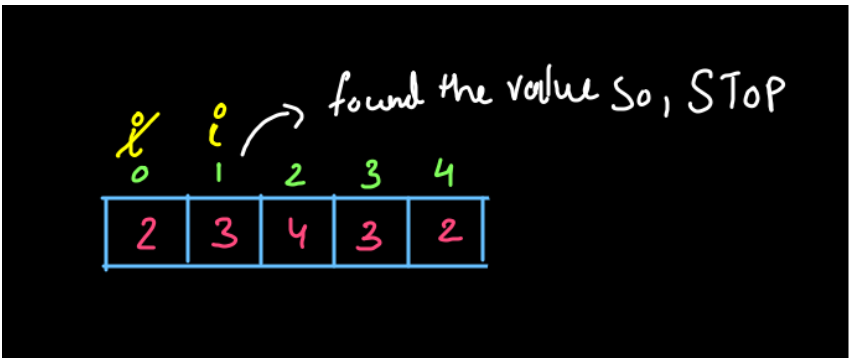 found the value So, STOP
i i
0 1 2 3 4
2 3 4 3 2